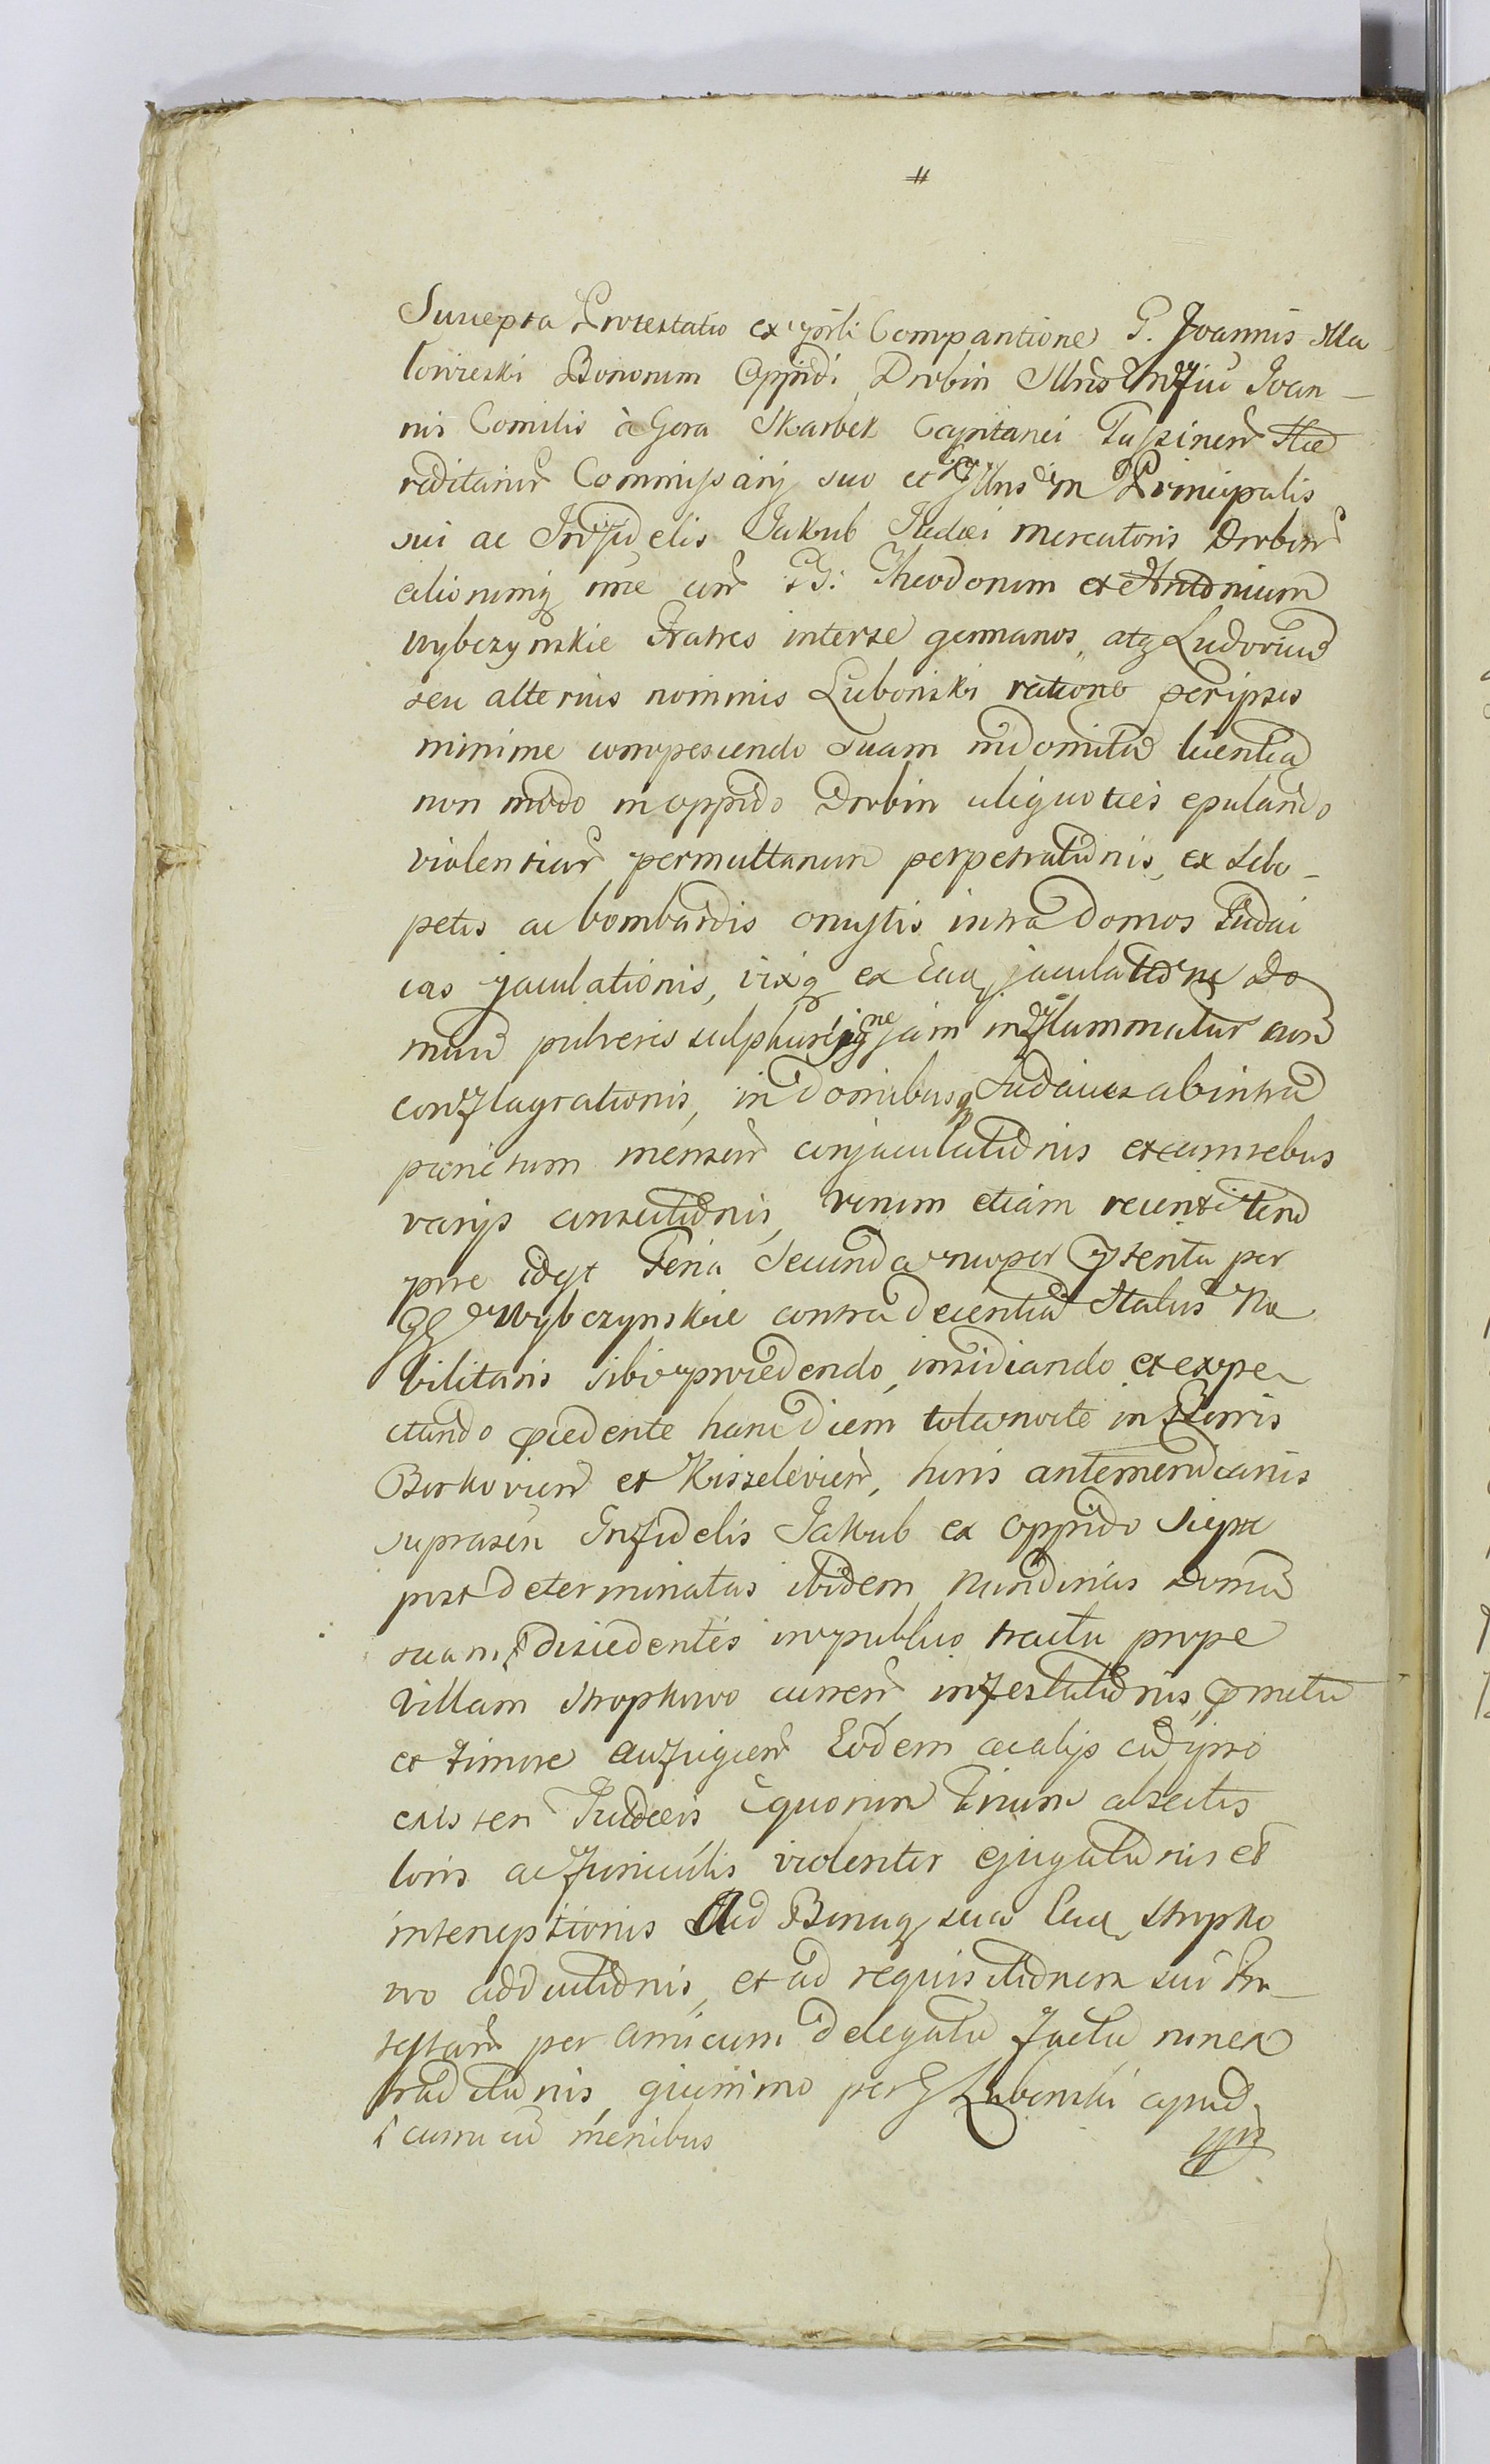 #
Suscepta Protestatio ex psnli Comparitione G. Joannis Ma
lowieski Bonorum Oppidi Drobin Illris Mgfici Joan-
nis Comitis à Gora Skarbek Capitanei Hæ
reditarior Commissarij suo et Illris Principalis
sui ac Infidelis Jakub Judæi mercatoris Drobin
aliorumq noe con GG. Theodorum et Antonium
Wybczynskie Fratres interse germanos, atq Ludovicum
seu alterius nominis Lubonski ratione peripsos
minime compescendo suam indomitã licentiã
non modo in oppido Drobin aliquoties epulando
violentiar permultarum perpetrationis, ex sclo-
petis ac bombardis onustis intra domos Judai
cas jaculationis, vixq ex Eaq jaculatione Do
muũ pulveris sulphurei jam inflammatur
conflagrationis, in Domibusq Judaicis abintra
parietum mensar conjaculationis et cum rebus
varijs consectionis, verum etiam recenti tem
pore idqt Feria Secunda nuper pterita per
GG Wybczynskie contra decentiã Status No
bilitaris sibi procedendo, insidiando et expe
ctando pcedente hanc diem tota nocte in Bonis
Borkovien et Kisselevien, horis antemeridianis
suprascri Infidelis Jakub ex oppido Sierpc
post determinatas ibidem nundinas Domũ
suam discedentis in publico tractu prope
villam Stropkowo curren infestationis, p metu
et timore aufugien Eodem ac alijs cũ ipso
existen Judæis Equorum Trium absectis
loris ac funiculis violenter ejugationis et
interceptionis Ad Bonaq sua Eaq Stropko
wo adductionis, et ad requisitionem sui Pro-
testan per amicum delegatũ factã non ex
traditionis, quinimo per G Lubonski apud
curru cũ mercibus
ipsũ